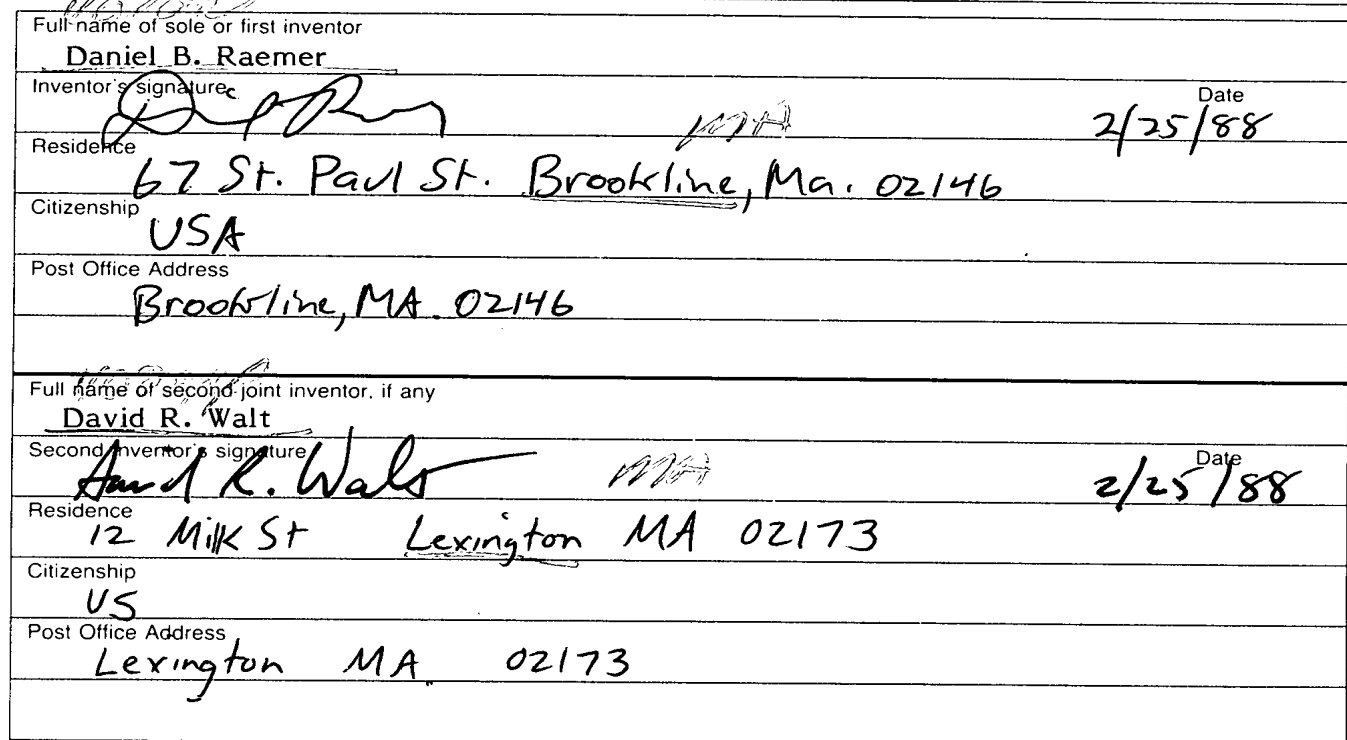 Full name of sole or first inventor
Daniel B. Raemer
Inventor's signature
Date
MA
2/25/88
Residence
67 St. Paul St. Brookline, Ma. 02146
Citizenship
USA
Post Office Address
Brookline, MA. 02146
Full name of second joint inventor, if any
David R. Walt
Second inventor's signature
Date
David R. Walt
MA
2/25/88
Residence
12 Milk St Lexington MA 02173
Citizenship
US
Post Office Address
Lexington MA 02173